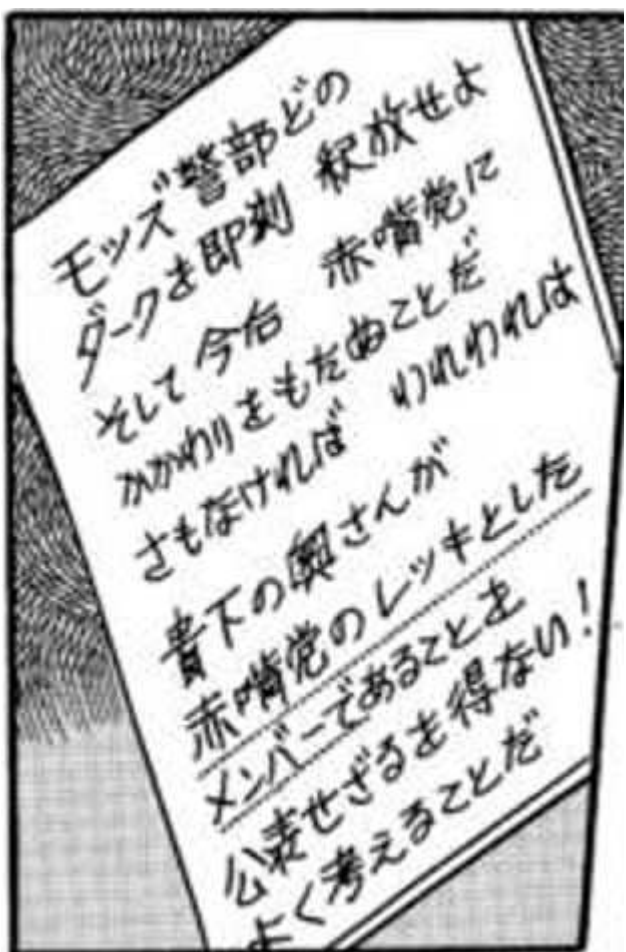 モッズ警部どの
ダークを即刻 釈放せよ
そして今后 赤嘴党に
かかわりをもたぬことだ
さもなければ われわれは
貴下の奥さんが
赤嘴党のレッキとした
メンバーであることを
公表せざるを得ない!
よく考えることだ